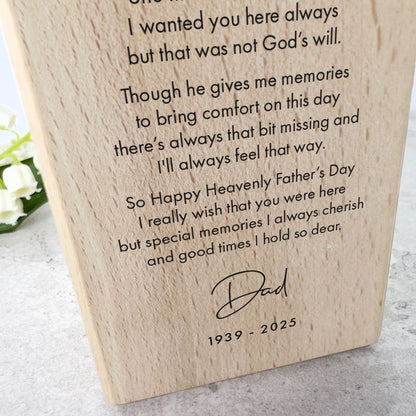 I wanted you here always
but that was not God's will.
Though he gives me memories
to bring comfort on this day
there's always that bit missing and
I'll always feel that way.
So Happy Heavenly Father's Day
I really wish that you were here
but special memories I always cherish
and good times I hold so dear,
Dad
1939 - 2025